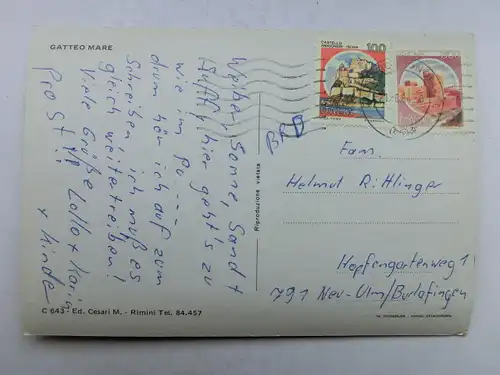 GATTEO MARE
Weiber, Sonne, Sand +
Luft, hier geht's zu
wie im Po----
drum hör ich auf zum
Schreiben ich muß es
gleich weitertreiben!
Viele Grüße
Prost!! Lollo + Karin
+ Kinder
C 643 - Ed. Cesari M. - Rimini Tel. 84.457
Riproduzione vietata
CASTELLO ARAGONESE - ISCHIA
100
BRD
Fam.
Helmut Rittlinger
Hopfengartenweg 1
791 Neu-Ulm/Burlafingen